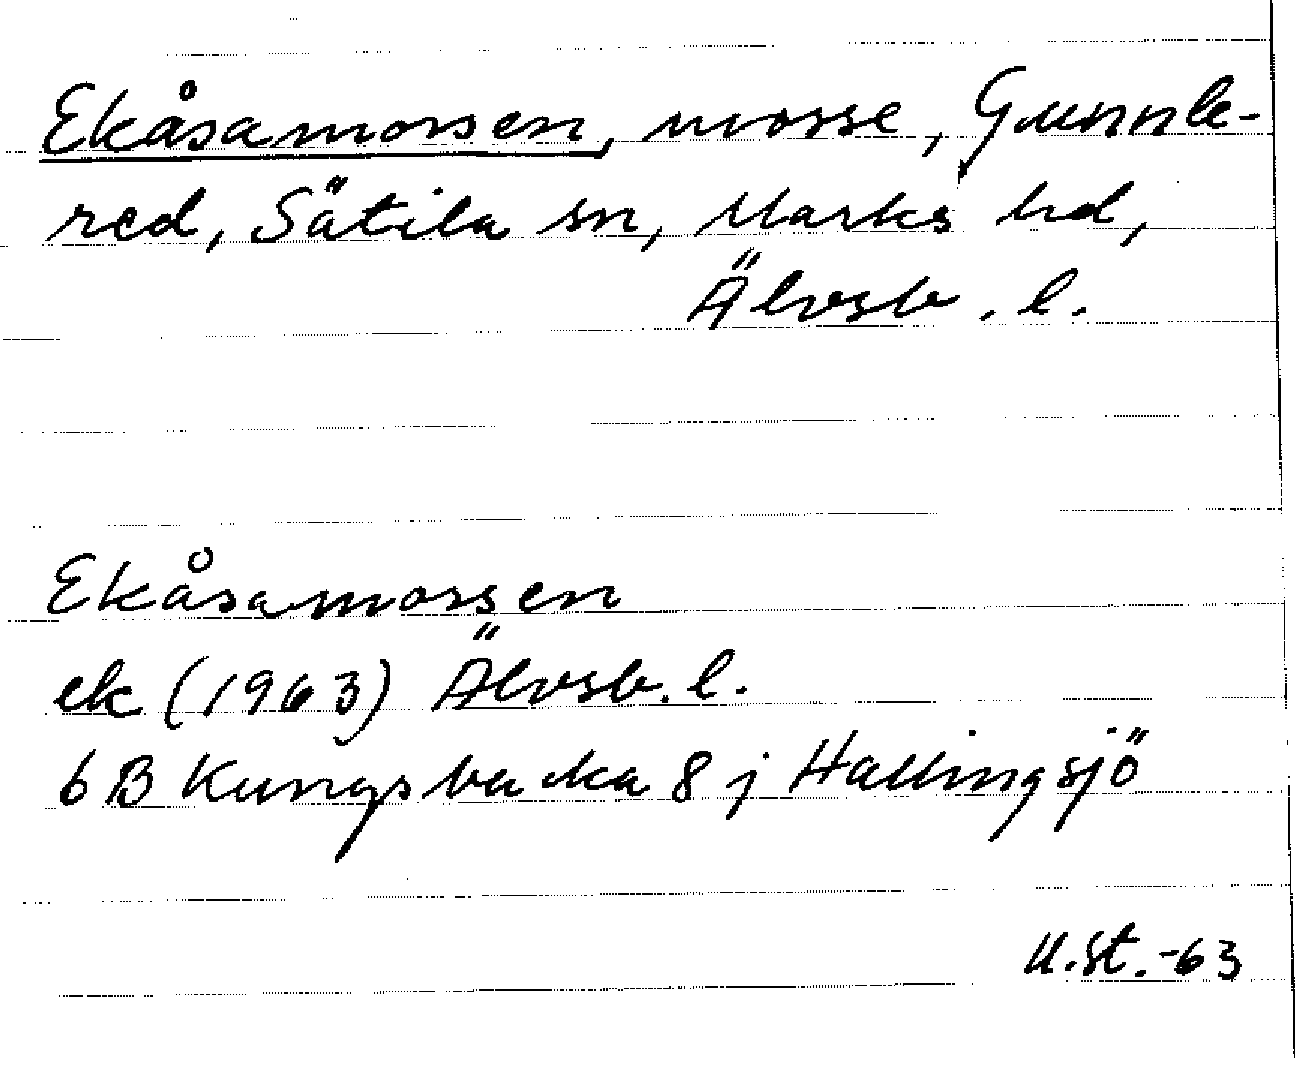 Ekåsamossen, mosse, Gunnle-
red, Sätila sn, Marks hd,
Älvsb. l.
Ekåsamossen
ek (1963) Älvsb. l.
6 B Kungsbacka 8 j Hällingsjö
U.St.-63